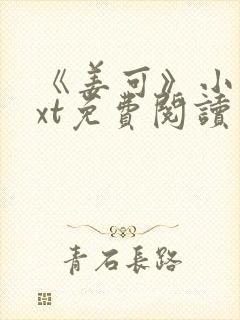 《姜可》小
xt免費閱讀
青石長路